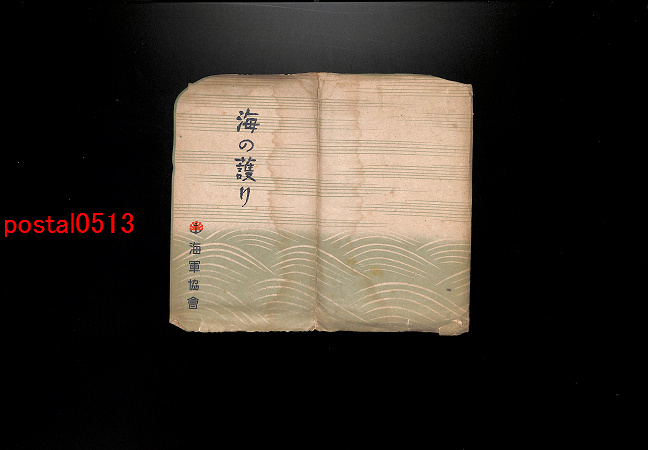 海の護り
海軍協會
postal0513